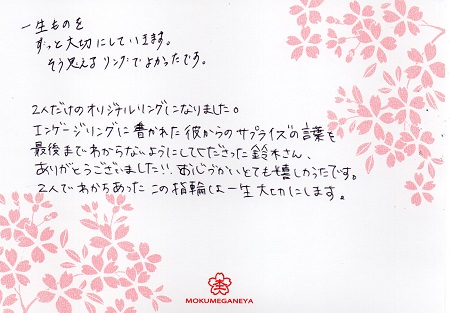 一生ものを
ずっと大切にしていきます。
そう思えるリングでよかったです。
2人だけのオリジナルリングになりました。
エンゲージリングに書かれた彼からのサプライズの言葉を
最後までわからないようにしてくださった鈴木さん、
ありがとうございました!! お心づかいとても嬉しかったです。
2人でわかちあった この指輪は一生大切にします。
MOKUMEGANEYA